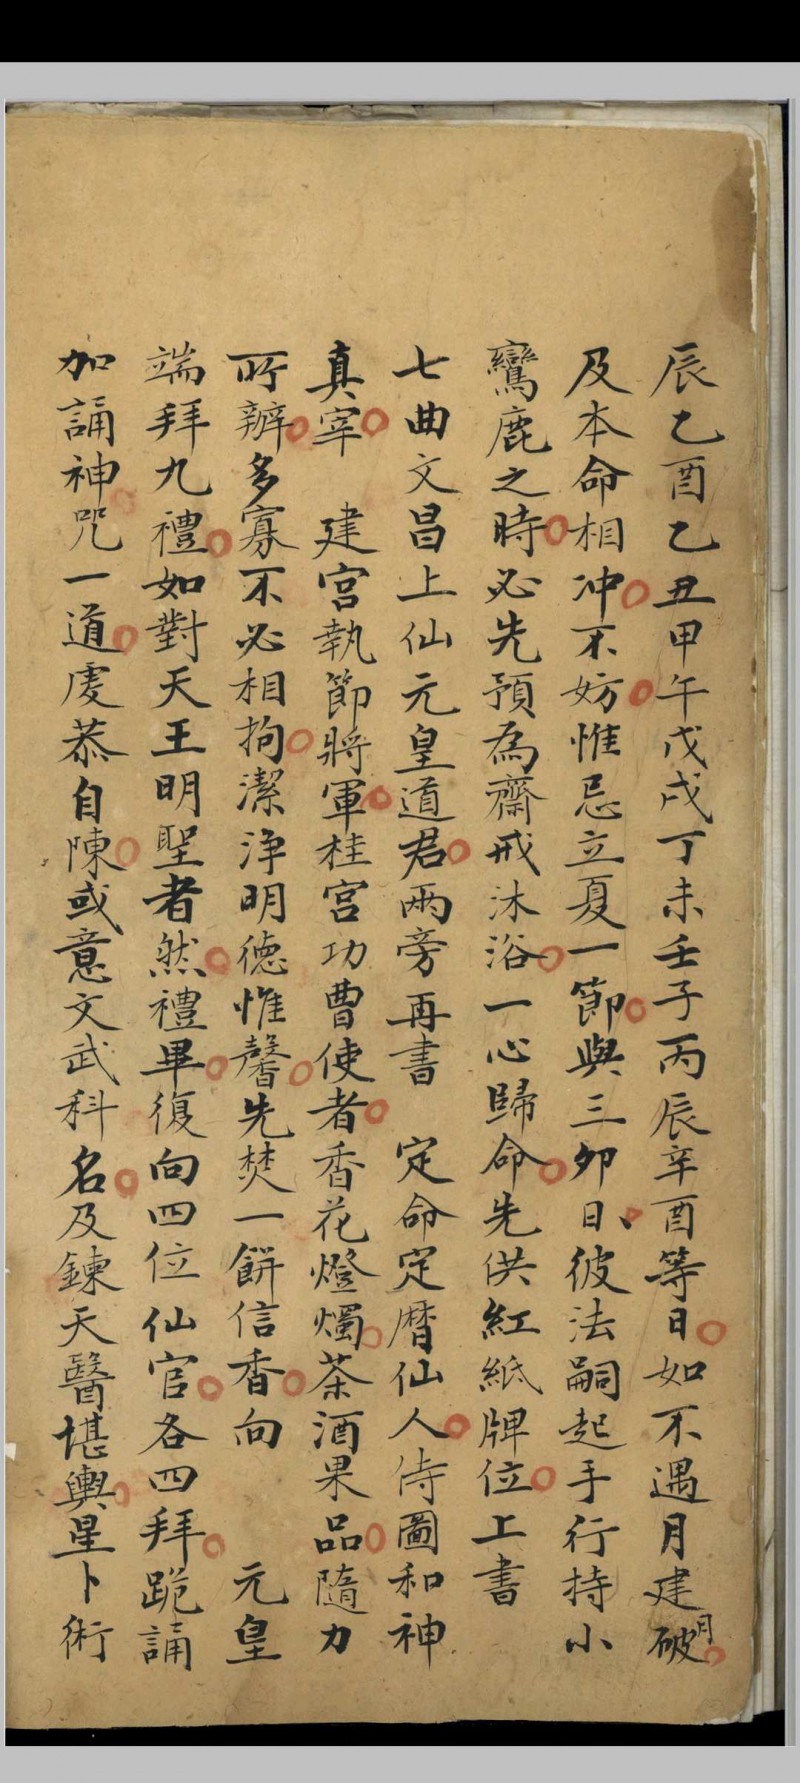 辰乙酉乙丑甲午戊戌丁未壬子丙辰辛酉等日如不遇月建月破
及本命相冲不妨惟忌立夏一節與三卯日彼法嗣起手行持小
鸞鹿之時必先預為齋戒沐浴一心歸命先供紅紙牌位上書
七曲文昌上仙元皇道君兩旁再書 定命定曆仙人侍圖和神
真宰 建宮執節將軍桂宮功曹使者香花燈燭茶酒果品隨力
所辦多寡不必相拘潔淨明德惟馨先焚一餅信香向 元皇
端拜九禮如對天王明聖者然禮畢復向四位仙官各四拜跪誦
加誦神咒一道虔恭自陳或意文武科名及鍊天醫堪輿星卜術